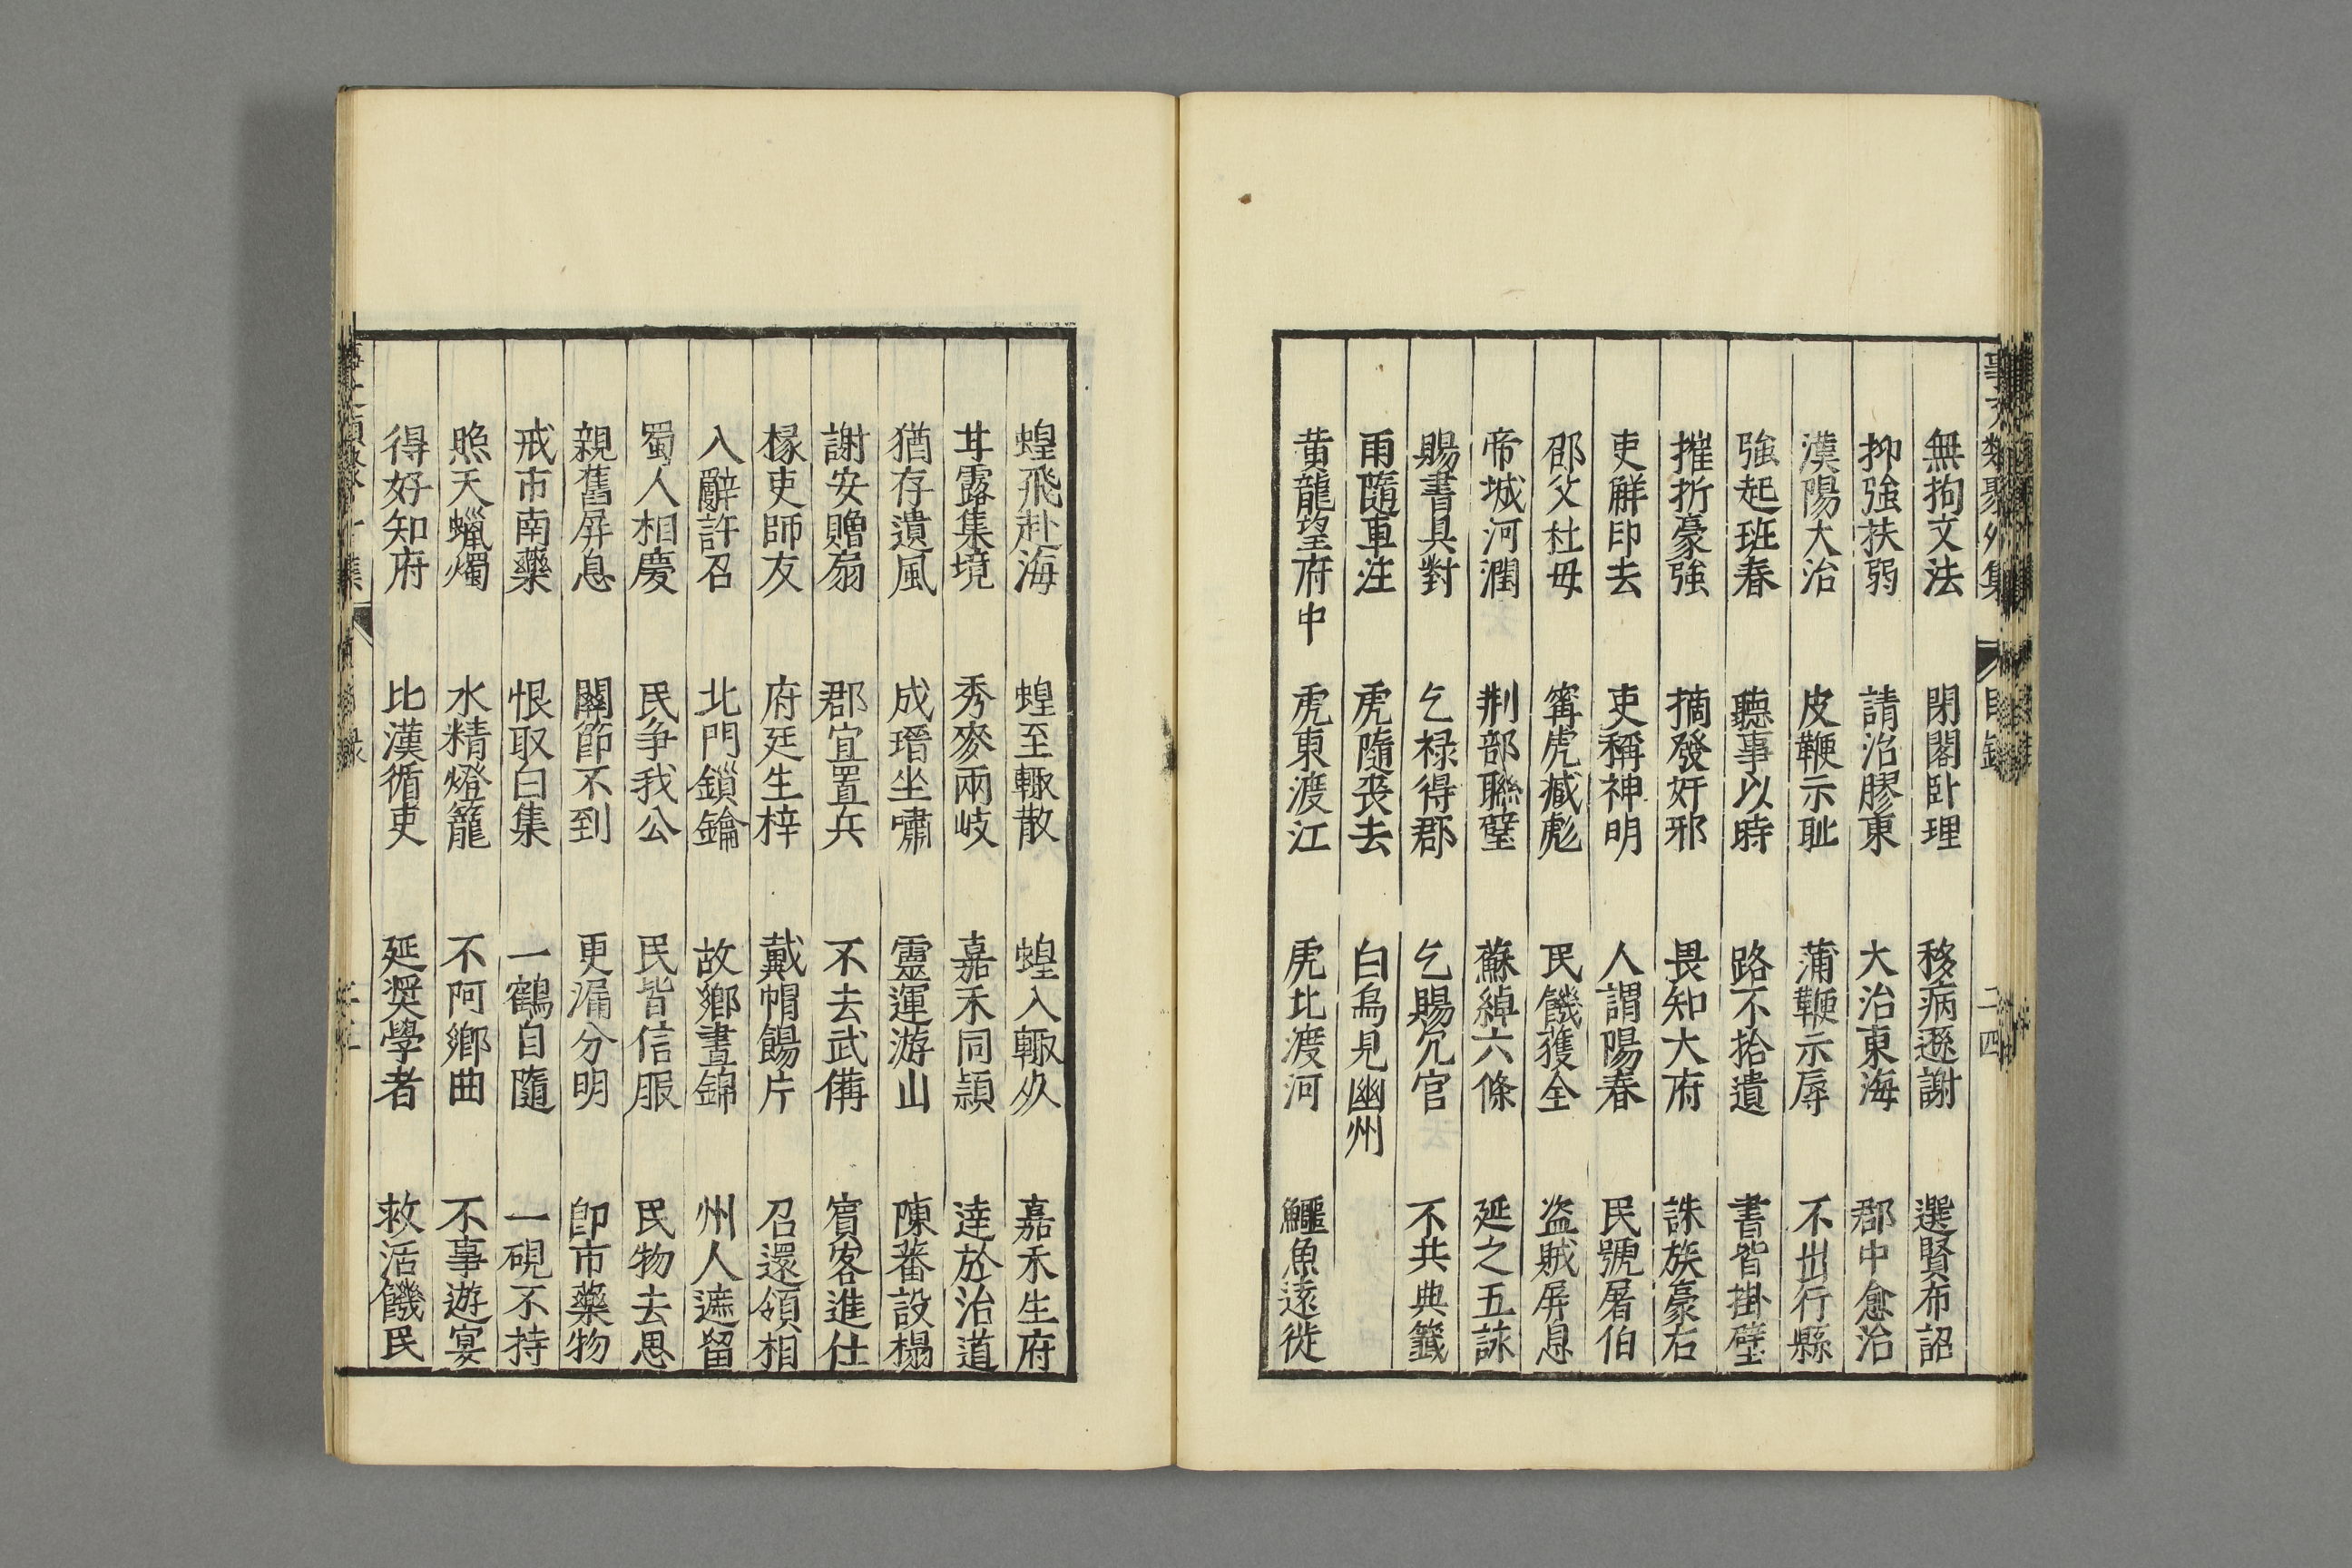 無拘文法 閉閣卧理 移病遜謝 選賢布詔
抑強扶弱 請治膠東 大治東海 郡中愈治
漢陽大治 皮鞭示恥 蒲鞭示辱 不出行縣
強起班春 聽事以時 路不拾遺 書皆掛壁
摧折豪強 摘發奸邪 畏知大府 誅族豪右
吏解印去 吏稱神明 人謂陽春 民號屠伯
邵父杜母 寗虎臧彪 民饑獲全 盗賊屏息
帝城河潤 荆部聯璧 蘇綽六條 延之五詠
賜書具對 乞禄得郡 乞賜冗官 不共典籖
雨隨車注 虎隨丧去 白烏見幽州
黄龍望府中 虎東渡江 虎北渡河 鱷魚遠徙
事文類聚外集 目録 二四
蝗飛赴海 蝗至輙散 蝗入輙死 嘉禾生府
甘露集境 秀麥兩岐 嘉禾同頴 逹於治道
猶存遺風 成瑨坐嘯 靈運游山 陳蕃設榻
謝安贈扇 郡宜置兵 不去武備 賔客進仕
椽吏師友 府廷生梓 戴帽餳片 召還領相
入辭許召 北門鎖鑰 故鄉晝錦 州人遮留
蜀人相慶 民争我公 民皆信服 民物去思
親舊屏息 關節不到 更漏分明 卽市藥物
戒市南藥 恨取白集 一鶴自隨 一硯不持
照天蠟燭 水精燈籠 不阿鄉曲 不事遊宴
得好知府 比漢循吏 延奨學者 救活饑民